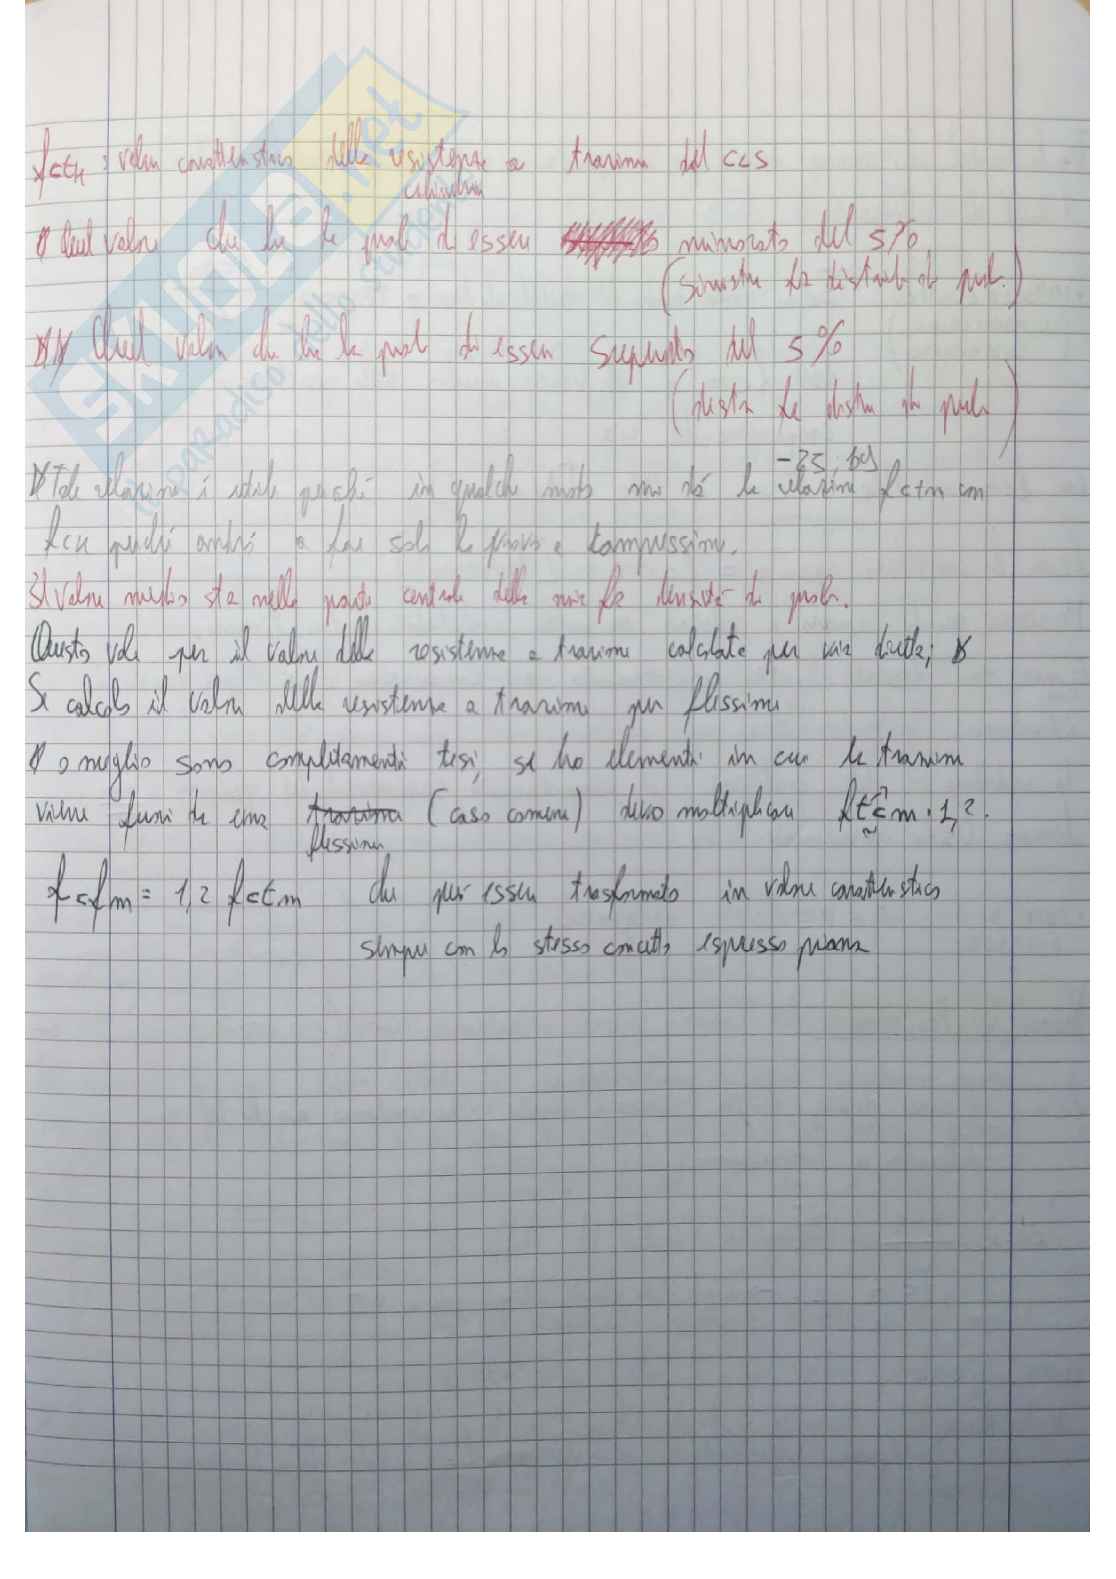 fctk : valore caratteristico della resistenza a trazione del CLS
cilindrica
Quel valore che ha la prob di essere minorato del 5%
(sinistra della distrib di prob.)
Quel valore che ha la prob di essere superato del 5%
(destra della distr di prob)
-25, 69
Tale relazione è utile perché in qualche modo mi dà la relazione fctm con
fck perché andrò a fare solo la prova a compressione.
Il valore medio sta nella parte centrale della mia densità di prob.
Questo vale per il valore della resistenza a trazione calcolata per via diretta;
Si calcola il valore della resistenza a trazione per flessione
o meglio sono completamente tesi, se ho elementi in cui la trazione
viene fuori da una trazione (caso comune) devo moltiplicare fctm · 1,2.
flessione
fcfm = 1,2 fctm che può essere trasformato in valore caratteristico
sempre con lo stesso concetto espresso prima
SKUOLA.net
il paradiso dello studente